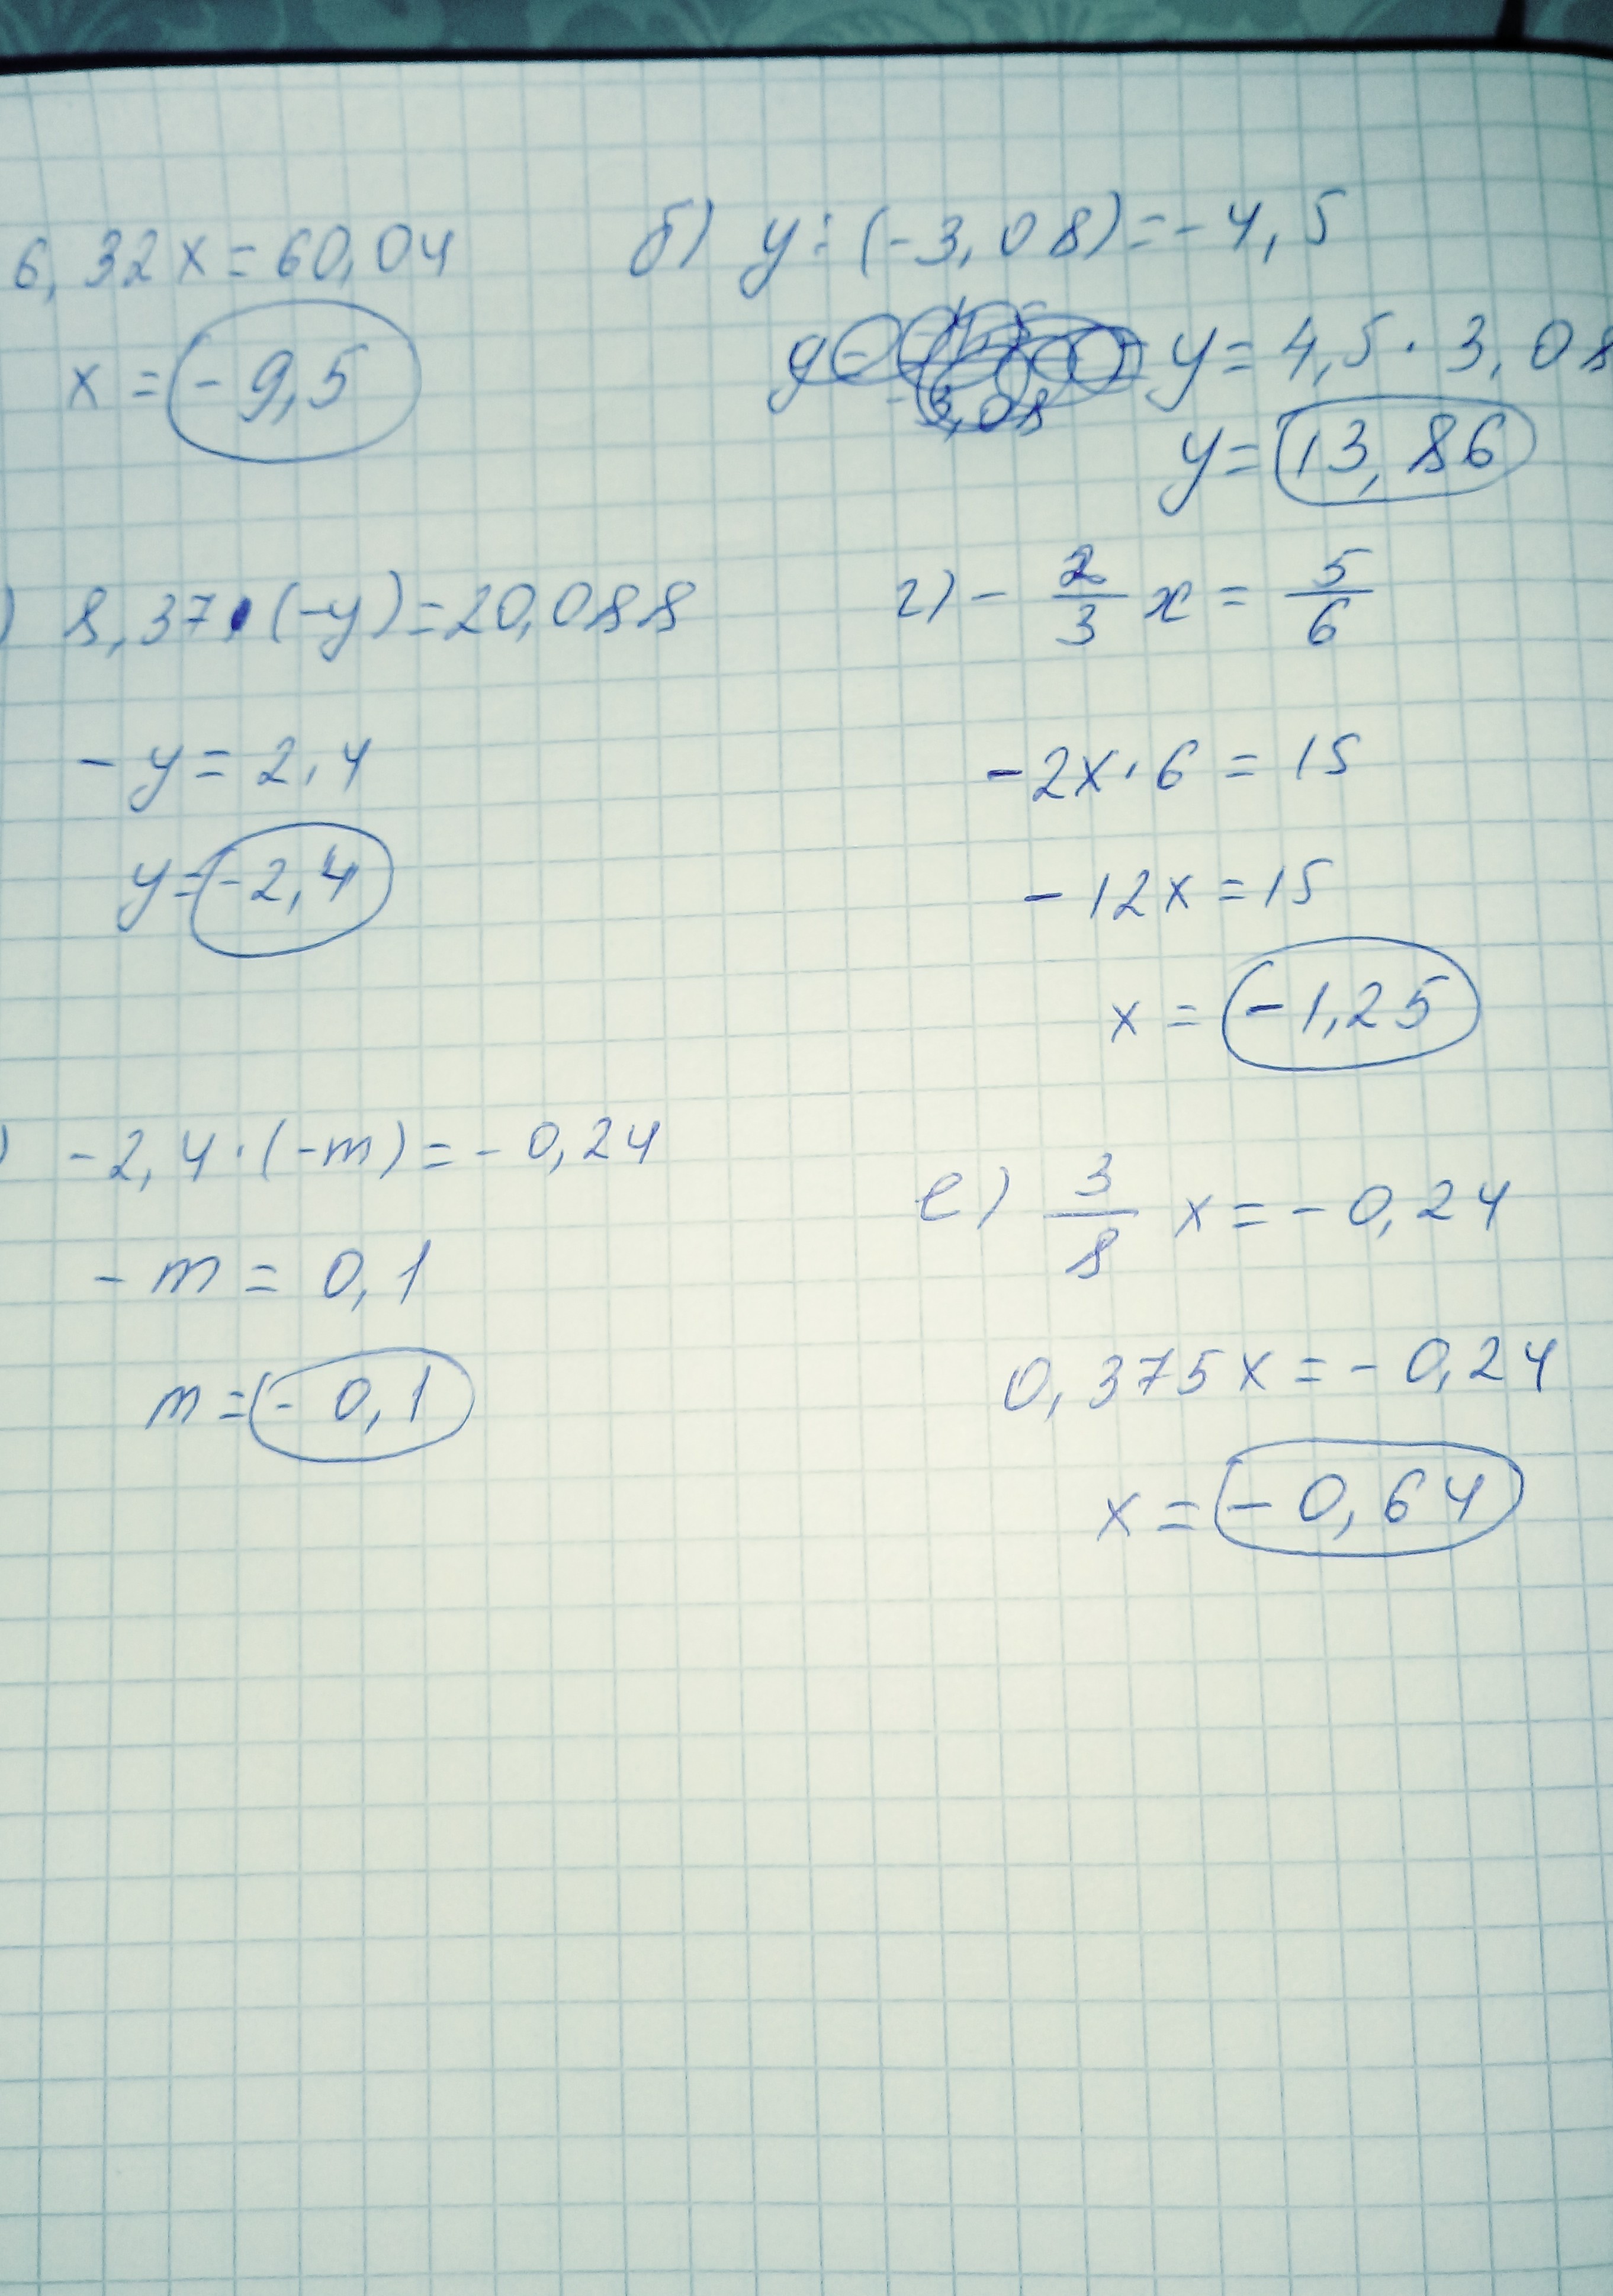 6,32x=60,04
x = -9,5
б) y:(-3,08)=-4,5
y= 4,5·3,08
y= 13,86
) 8,37·(-y)=20,088
-y= 2,4
y=-2,4
г) - 2/3 x = 5/6
-2x·6 = 15
-12x=15
x = -1,25
) -2,4·(-m)=-0,24
-m = 0,1
m = -0,1
е) 3/8 x = -0,24
0,375x=-0,24
x = -0,64